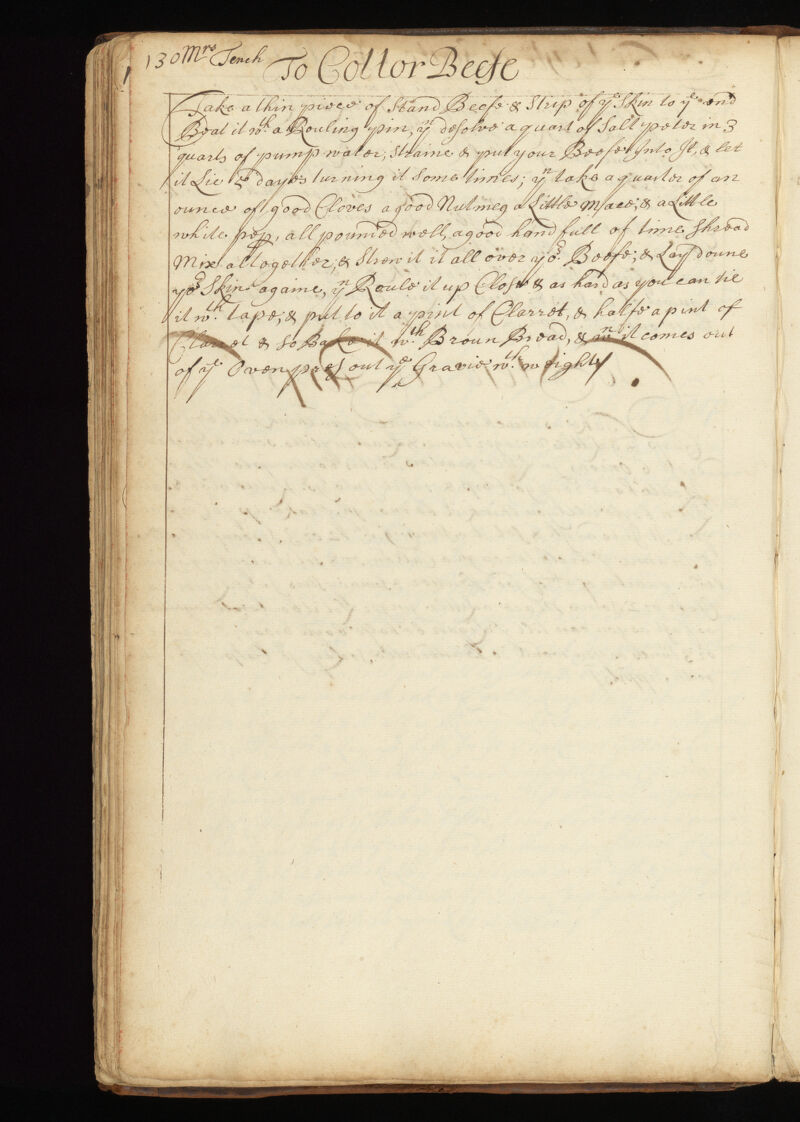 130 Mrs Tench
To Collor Beefe
Take a thin piece of Stand Beefe & Strip of ye Skin to ye end
Beat it wth a Rouling pin, yn desolve a quart of Salt peter in 3
quarts of pump water, Straine & put your Beefe Into It, & let
it Lie 5 dayes turning it Some times; yn take a quarter of an
ounce of good Cloves a good Nutmeg a Little Mace, & a Little
white pep, all pounded well, a good hand full of time Shread
Mix altogether, & Strew it it all over yor Beefe; & Lay doune
yor Skin againe, yn Roule it up Close & as hard as you can tie
it wth tape; & put to it a pint of Clarret, & halfe a pint of
Clarret & So Bake it wth Broun Bread, & wn it comes out
of ye Oven press out ye Gravie wth weights